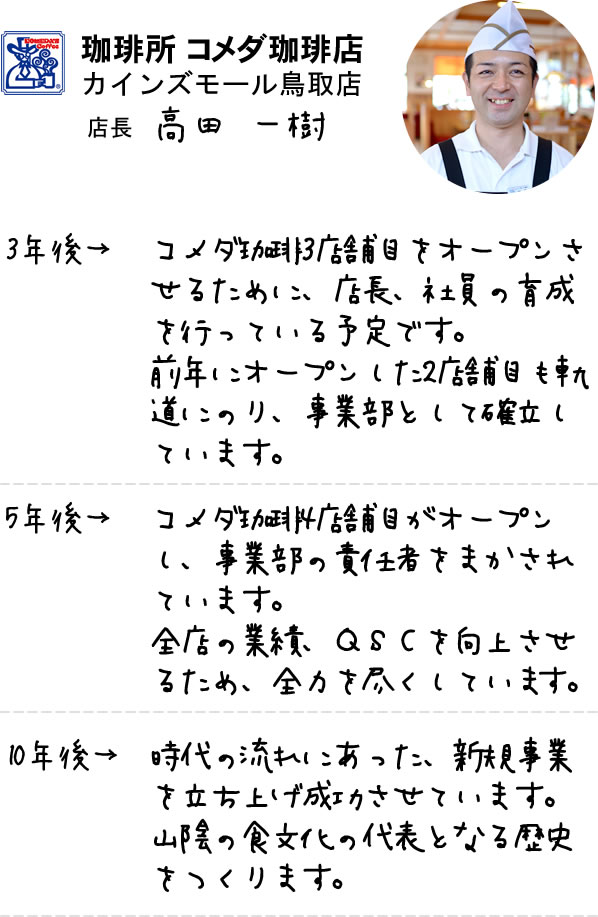 KOMEDA'S
Coffee
珈琲所 コメダ珈琲店
カインズモール鳥取店
店長 高田 一樹
3年後→ コメダ珈琲3店舗目をオープンさ
せるために、店長、社員の育成
を行っている予定です。
前年にオープンした2店舗目も軌
道にのり、事業部として確立し
ています。
5年後→ コメダ珈琲4店舗目がオープン
し、事業部の責任者をまかされ
ています。
全店の業績、QSCを向上させ
るため、全力を尽くしています。
10年後→ 時代の流れにあった、新規事業
を立ち上げ成功させています。
山陰の食文化の代表となる歴史
をつくります。